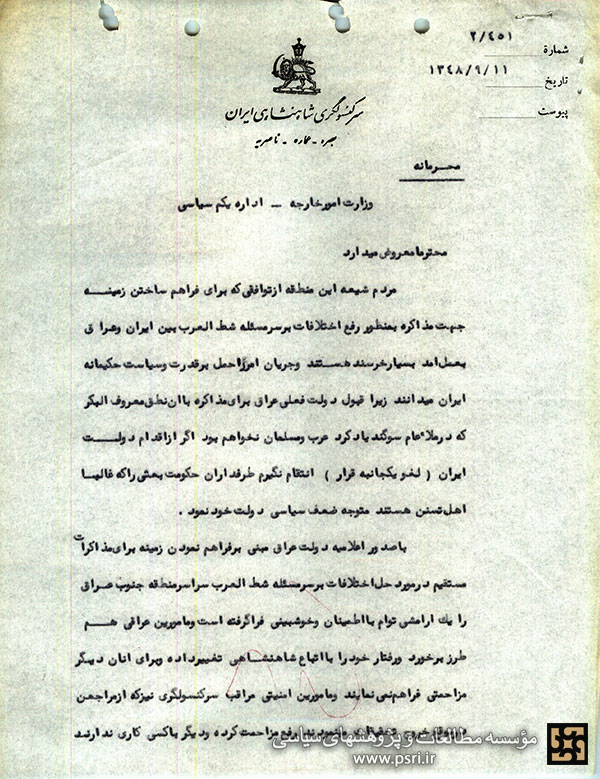 شماره ۲/٤٥١
تاریخ ۱۳٤۸/۹/۱۱
پیوست
سرکنسولگری شاهنشاهی ایران
بصره - عماره - ناصریه
محرمانه
وزارت امور خارجه - اداره یکم سیاسی
محترما معروض میدارد
مردم شیعه این منطقه از توافقی که برای فراهم ساختن زمینه
جهت مذاکره بمنظور رفع اختلافات بر سر مسئله شط العرب بین ایران و عراق
بعمل امد بسیار خرسند هستند و جریان امر را حمل بر قدرت و سیاست حکیمانه
ایران میدانند زیرا قبول دولت فعلی عراق برای مذاکره با ان نطق معروف البکر
که در ملاء عام سوگند یاد کرد عرب و مسلمان نخواهم بود اگر از اقدام دولت
ایران ( لغو یکجانبه قرار ) انتقام نگیرم طرفداران حکومت بعثی را که غالبا
اهل تسنن هستند متوجه ضعف سیاسی دولت خود نمود .
با صدور اعلامیه دولت عراق مبنی بر فراهم نمودن زمینه برای مذاکرات
مستقیم در مورد حل اختلافات بر سر مسئله شط العرب سراسر منطقه جنوب عراق
را یك ارامشی توام با اطمینان و خوشبینی فرا گرفته است و مامورین عراقی هم
طرز برخورد و رفتار خود را با اتباع شاهنشاهی تغییر داده و برای انان دیگر
مزاحمتی فراهم نمی نمایند و مامورین امنیتی مراقب سرکنسولگری نیز که از مراجعین
رفع مزاحمت کرده و دیگر با کسی کاری ندارند
مؤسسه مطالعات و پژوهشهای سیاسی
www.psri.ir